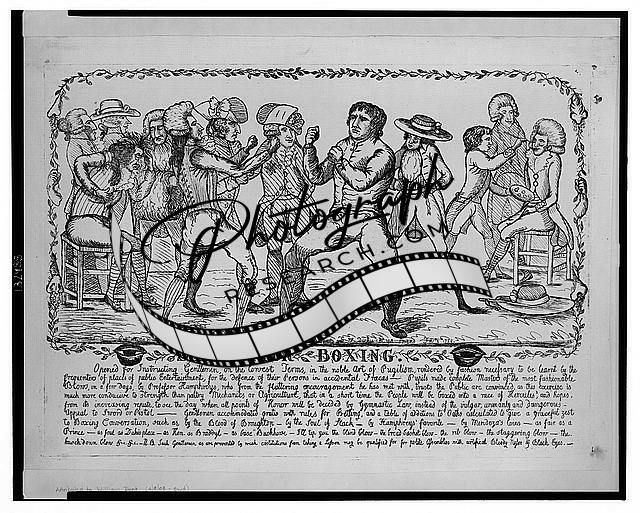 Photograph
RESEARCH.COM
BOXING.
Opened for Instructing Gentlemen, on the lowest Terms, in the noble Art of Pugilism, rendered by fashion necessary to be learnt by the
Frequenters of places of public Entertainment, for the defence of their Persons in accidental Fracas — Pupils made complete Masters of the most fashionable
Blows, in a few days, by Professor Humphreys, who from the flattering encouragement he has met with, trusts the Public are convinced, as this exercise is
much more conducive to strength than paltry Mechanics or Agriculture, that in a short time the People will be braced into a race of Hercules; and hopes,
from its increasing repute, to see the day when all points of Honor will be decided by Gymnastic Law, instead of the vulgar, unmanly and dangerous
appeal to Sword or Pistol. Gentlemen accommodated gratis with rules for Betting, and a table of additions to Oaths calculated to give a graceful zest
to Boxing Conversation, such as by the Blood of Broughton — by the Soul of Slack — by Humphreys' favorite — by Mendoza's — as fair as a
Prince — as — I'll tip you the blind blow — the bread basket blow — the rib blow — the staggering blow — the
knock down blow &c. &c. N.B. Such Gentlemen as are prevented by weak constitutions from taking a Lesson may be qualified for public Assemblies with artificial Bloody Noses & Black Eyes.